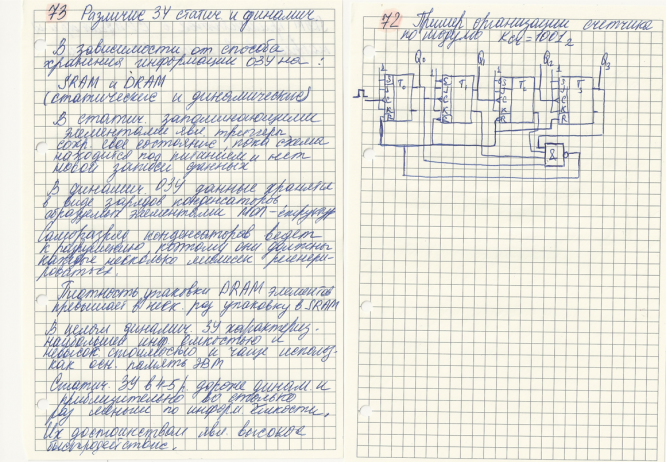 73 Различие ЗУ статич и динамич.
В зависимости от способа
хранения информации ОЗУ на:
SRAM и DRAM
(статические и динамические)
В статич. запоминающими
элементами явл триггеры
сохр своё состояние, пока схема
находится под питанием и нет
новой записи данных
В динамич ОЗУ данные хранятся
в виде зарядов конденсаторов
образуемых элементами МОП-структур
Саморазряд конденсаторов ведет
к разрушению поэтому они должны
каждые несколько миллисек регенери-
роваться.
Плотность упаковки DRAM элементов
превышает в неск раз упаковку в SRAM
В целом динамич ЗУ характериз.
наибольшей инф ёмкостью и
невысок стоимостью и чаще использ.
как осн. память ЭВМ
Статич. ЗУ в 4-5 р дороже динам и
приблизительно во столько
раз меньше по информ ёмкости.
Их достоинством явл. высокое
быстродейств.
72 Пример организации счетчика
по модулю Kсч = 1001₂
Q₀ Q₁ Q₂ Q₃
1 1 1 1
S J C K R T₀
S J C K R T₁
S J C K R T₂
S J C K R T₃
&